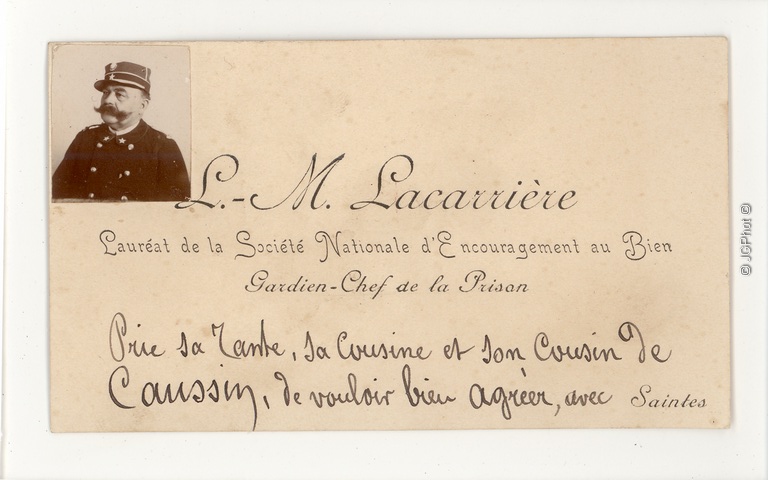 L.-M. Lacarrière
Lauréat de la Société Nationale d'Encouragement au Bien
Gardien-Chef de la Prison
Prie sa Tante, sa Cousine et son Cousin de
Caussin, de vouloir bien agréer, avec
Saintes
© JGPhot ©